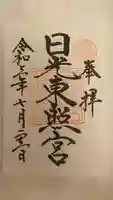 奉拝
日光東照宮
令和六年七月二日